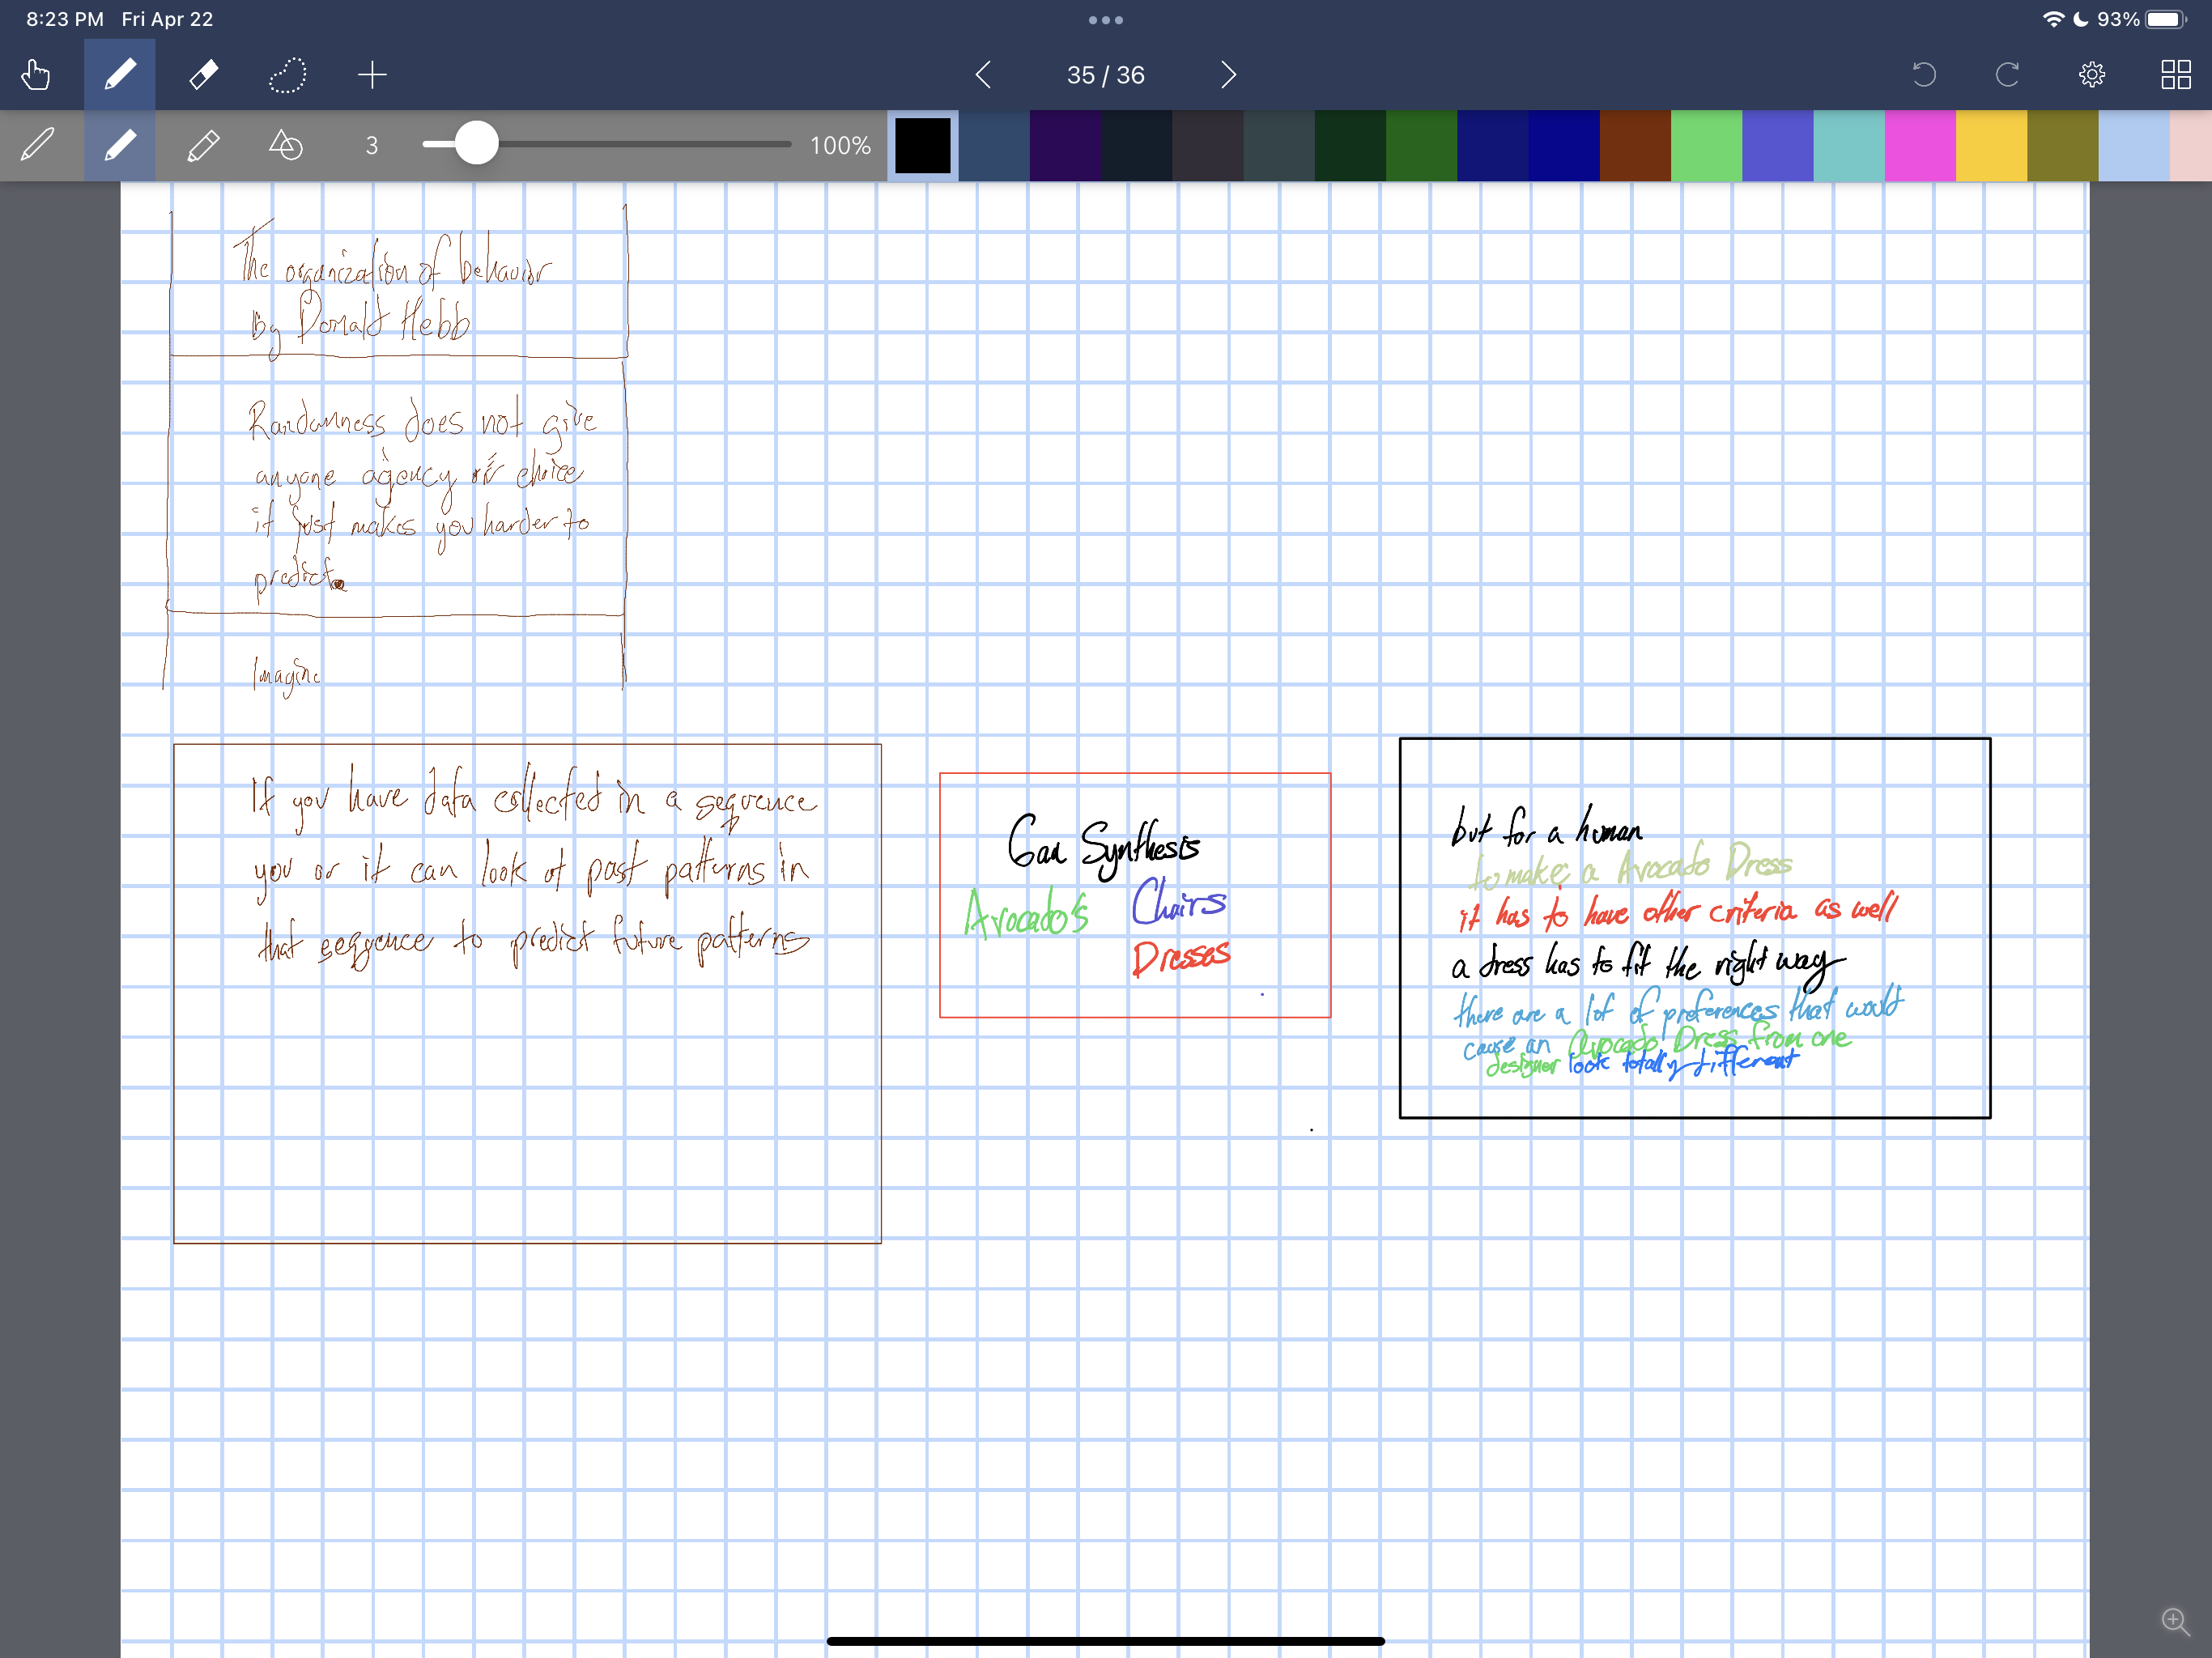 8:23 PM Fri Apr 22
93%
35 / 36
3
100%
The organization of behavior
by Donald Hebb
Randomness does not give
anyone agency or choice
it just makes you harder to
predict.
Imagine
If you have data collected in a sequence
you or it can look at past patterns in
that seqyence to predict future patterns
Gan Synthesis
Avocado's Chairs
Dresses
but for a human
to make a Avocado Dress
it has to have other criteria as well
a dress has to fit the right way
there are a lot of preferences that would
cause an Avocado Dress from one
designer look totally different